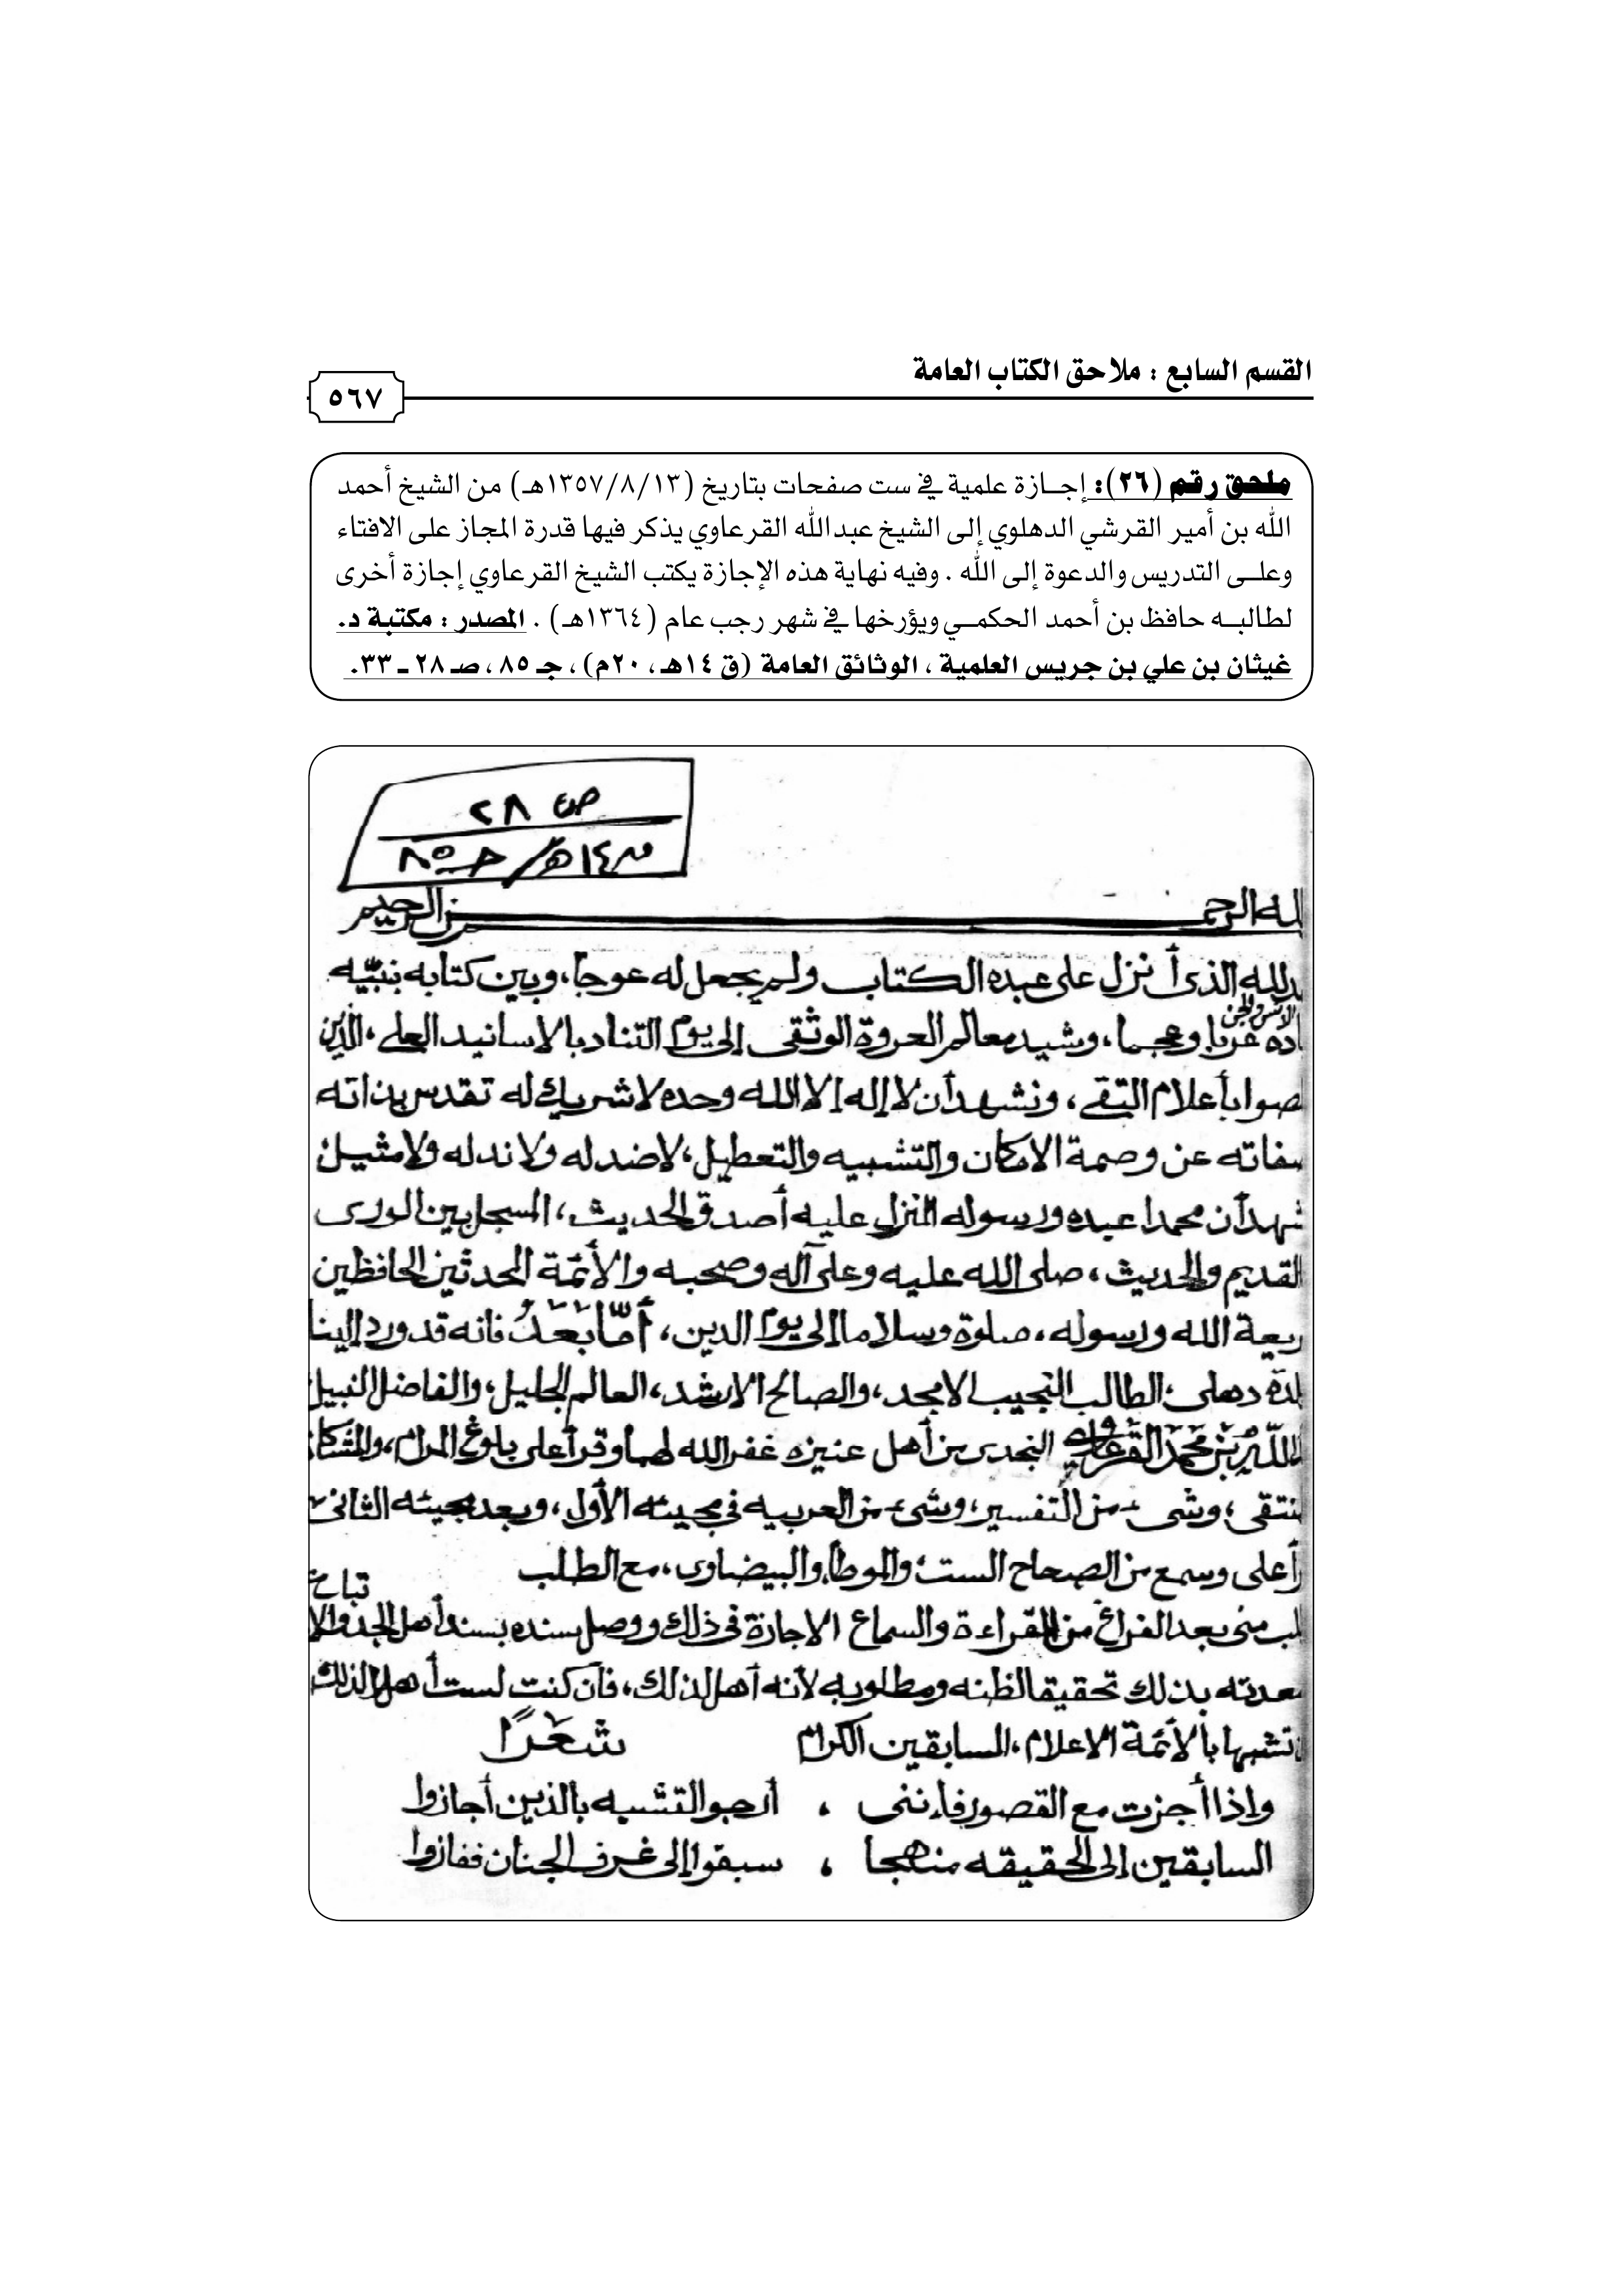 القسم السابع : ملاحق الكتاب العامة
٥٦٧
ملحق رقم (٢٦): إجــازة علمية في ست صفحات بتاريخ (١٣٥٧/٨/١٣هـ) من الشيخ أحمد
الله بن أمير القرشي الدهلوي إلى الشيخ عبدالله القرعاوي يذكر فيها قدرة المجاز على الافتاء
وعلــى التدريس والدعوة إلى الله . وفيه نهاية هذه الإجازة يكتب الشيخ القرعاوي إجازة أخرى
لطالبــه حافظ بن أحمد الحكمــي ويؤرخها في شهر رجب عام (١٣٦٤هـ) . المصدر : مكتبة د.
غيثان بن علي بن جريس العلمية ، الوثائق العامة (ق ١٤هـ ، ٢٠م) ، جـ ٨٥ ، صـ ٢٨ ـ ٣٣.
ص ٢٨
ق ١٤هـ / جـ ٨٥
لله الرحمن الرحيم
لله الذى أنزل على عبده الكتاب ولم يجعل له عوجا، وبين كتابه بنبيه
الانس والجن
عربا وعجما، وشيد معالم العروة الوثقى إلى يوم التناد بالاسانيد العلى، الذين
بأعلام التقى، ونشهد أن لا إله إلا الله وحده لا شريك له تقدس بذاته
عن وصمة الامكان والتشبيه والتعطيل، لا ضد له ولا ند له ولا مثيل
أن محمدا عبده ورسوله المنزل عليه أصدق الحديث، المسجل بين الورى
القديم والحديث، صلى الله عليه وعلى آله وصحبه والأئمة المحدثين الحافظين
الله ورسوله، صلوة وسلاما إلى يوم الدين، أما بعد فانه قد ورد إلينا
دهلى، الطالب النجيب الامجد، والصالح الارشد، العالم الجليل، والفاضل النبيل
بن محمد القرعاوي النجدى من أهل عنيزه غفر الله لهما وقرأ على بلوغ المرام،
وشىء من التفسير، وشىء من العربيه فى مجيئه الأول، وبعد مجيئه الثانى
على وسمع من الصحاح الست، والموطأ، والبيضاوى، مع الطلب
منى بعد الفراغ من القراءة والسماع الاجازة فى ذلك ووصل سنده بسند أهل الجد والا
تباع
بذلك تحقيقا لظنه ومطلوبه لأنه أهل لذلك، فان كنت لست أهلا لذلك
تشبها بالأئمة الاعلام، السابقين الكرام شعرًا
وإذا أجزت مع القصور فإننى ، أرجو التشبه بالذين أجازوا
السابقين إلى الحقيقه منهجا ، سبقوا إلى غرف الجنان ففازوا